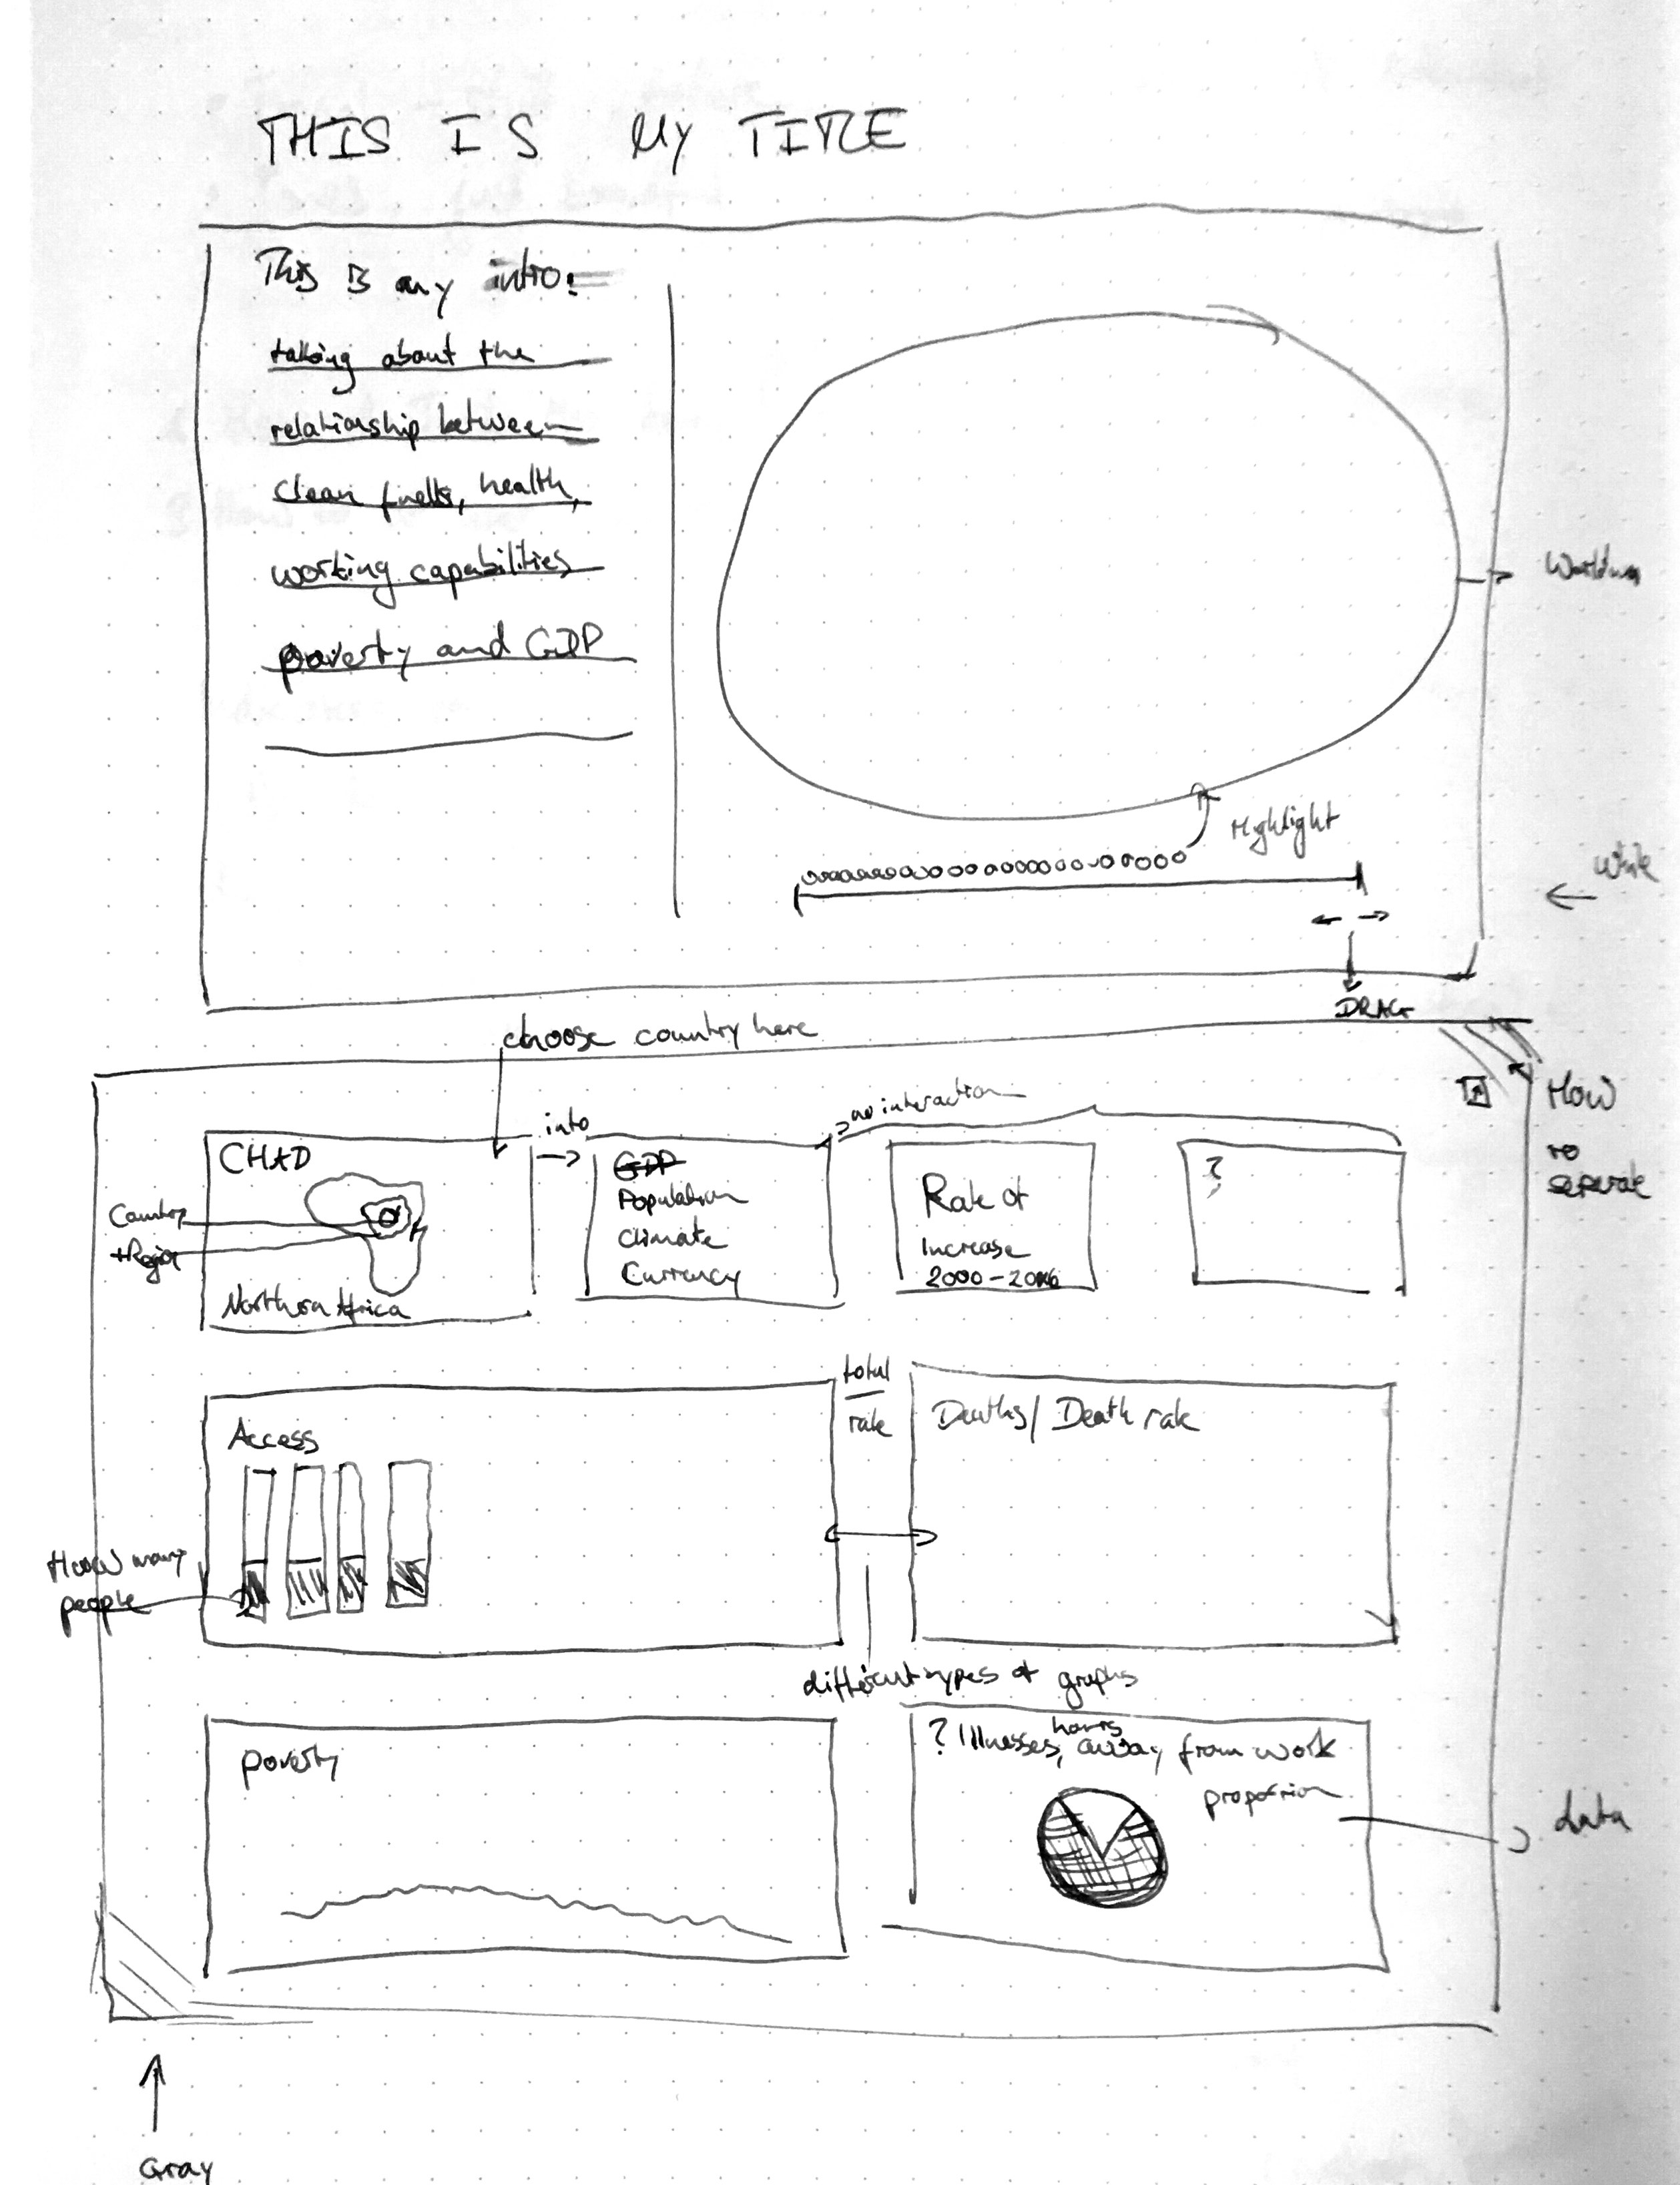 THIS IS MY TITLE
This is my intro:
talking about the
relationship between
clean fuells, health,
working capabilities
poverty and GDP
Highlight
White
DRAG
choose country here
How
to
seperate
into
no interaction
CHAD
Country
+Region
Northern Africa
GDP
Population
climate
Currency
Rate of
Increase
2000-2016
?
total
rate
Access
How many
people
Deaths/Death rate
different types of graphs
poverty
? Illnesses, hours away from work
proportion
data
Gray